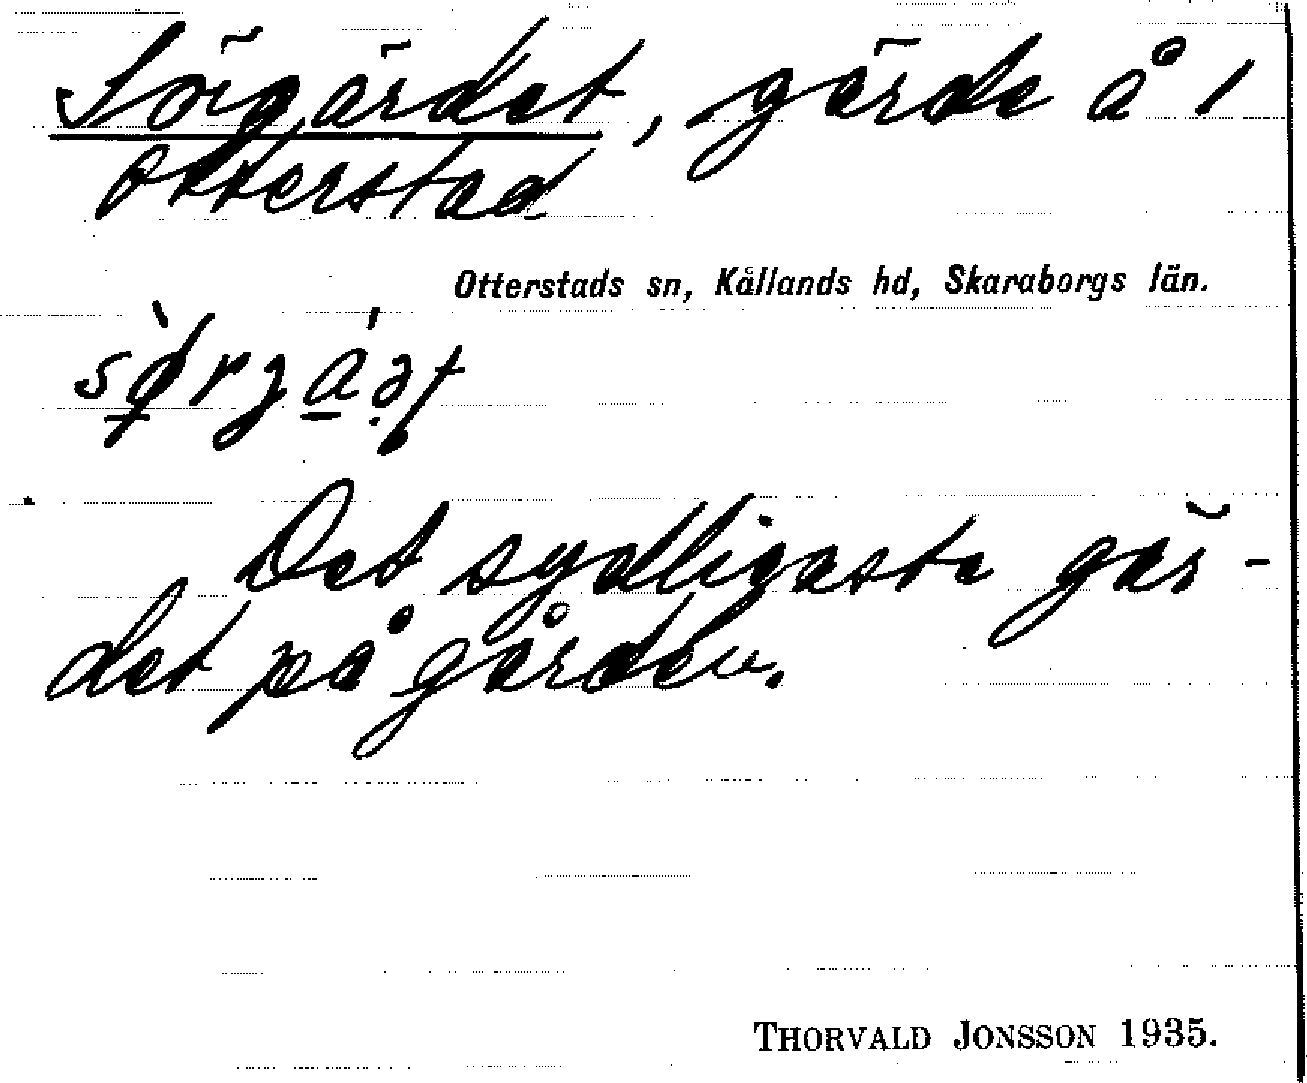 Sörgärdet, gärde å 1
Otterstad
Otterstads sn, Kållands hd, Skaraborgs län.
Det sydligaste gär-
det på gården.
THORVALD JONSSON 1935.